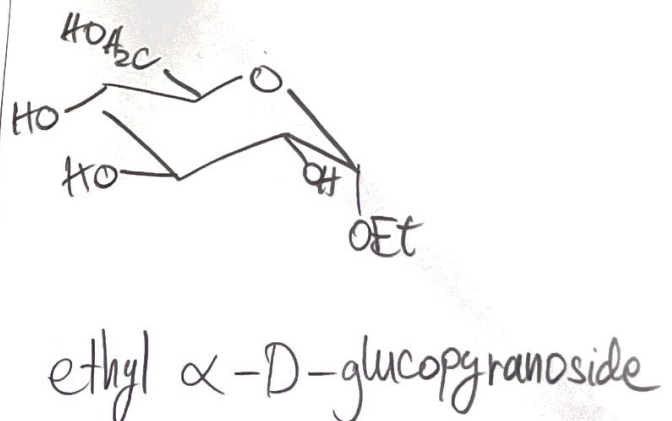 HOH₂C
O
HO
HO
OH
OEt
ethyl α-D-glucopyranoside